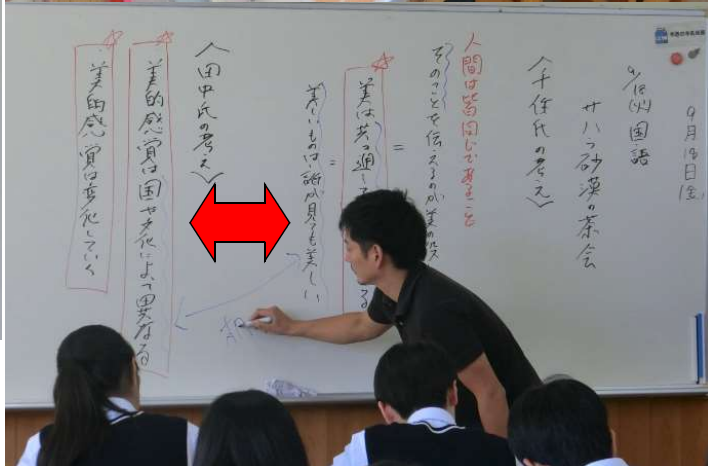 9月18日(金)
9/18(火)国語
サハラ砂漠の茶会
〈千住氏の考え〉
人間は皆同じであること
そのことを伝えるのが美の
=
美は共通して
=
美しいものは誰が見ても美しい
〈田中氏の考え〉
美的感覚は国や文化によって異なる
美的感覚は変化していく